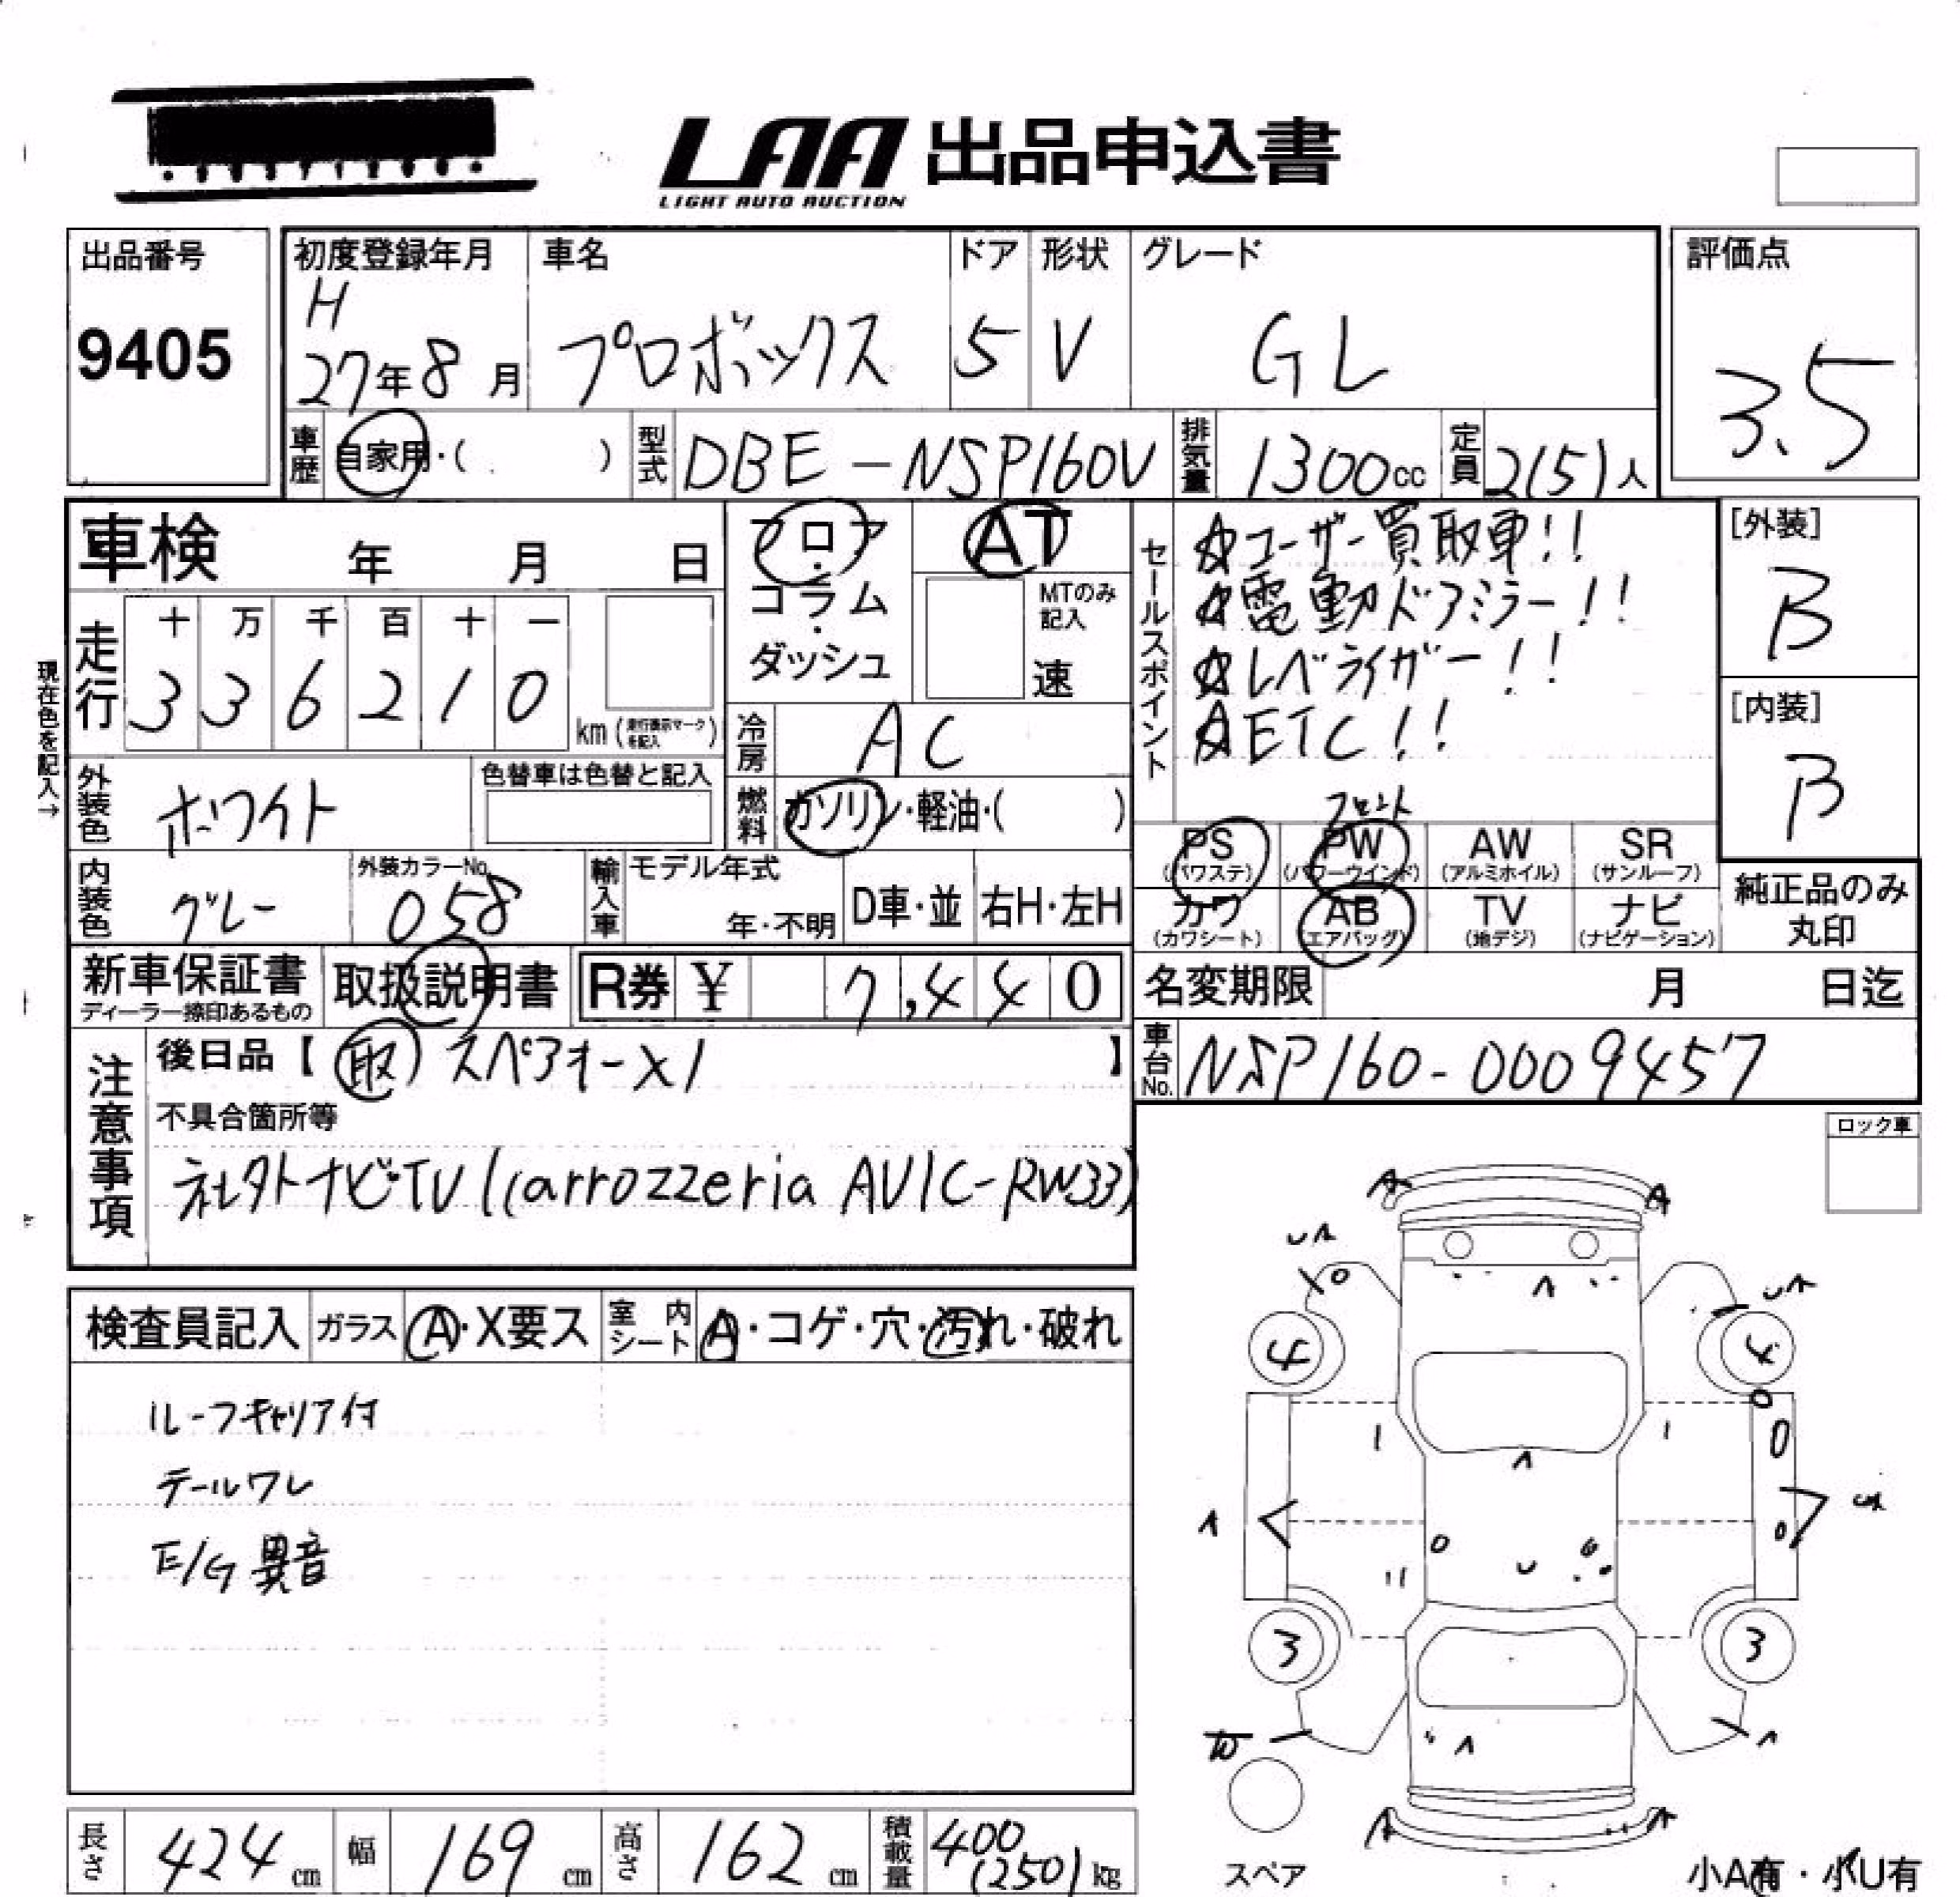 LAA 出品申込書
LIGHT AUTO AUCTION
出品番号
9405
初度登録年月
H
27年8月
車名
プロボックス
ドア
5
形状
V
グレード
GL
評価点
3.5
車歴
自家用・( )
型式
DBE-NSP160V
排気量
1300cc
定員
2(5)人
車検 年 月 日
フロア・コラム・ダッシュ
AT
MTのみ記入
速
セールスポイント
☆ユーザー買取車!!
☆電動ドアミラー!!
☆レベライザー!!
☆ETC!!
[外装]
B
[内装]
B
現在色を記入→
走行
十 万 千 百 十 一
3 3 6 2 1 0
km(走行表示マークを記入)
冷房
AC
外装色
ホワイト
色替車は色替と記入
燃料
ガソリン・軽油・( )
フロント
PS (パワステ)
PW (パワーウインド)
AW (アルミホイル)
SR (サンルーフ)
カワ (カワシート)
AB (エアバッグ)
TV (地デジ)
ナビ (ナビゲーション)
純正品のみ丸印
内装色
グレー
外装カラーNo.
058
輸入車
モデル年式
年・不明
D車・並
右H・左H
新車保証書
ディーラー捺印あるもの
取扱説明書
R券 ¥ 7,440
名変期限 月 日迄
注意事項
後日品【 取 スペアキーX1 】
車台No.
NSP160-0009457
不具合箇所等
社外ナビ・TV (carrozzeria AVIC-RW33)
ロック車
検査員記入
ガラス
A・X要ス
室内シート
A・コゲ・穴・汚れ・破れ
ルーフキャリア付
テールワレ
E/G 異音
A
A
UA
X0
A
UA
4
4
A
U
3
3
W
A
A
A
A
スペア
小A有・小U有
長さ
424 cm
幅
169 cm
高さ
162 cm
積載量
400
(250) kg